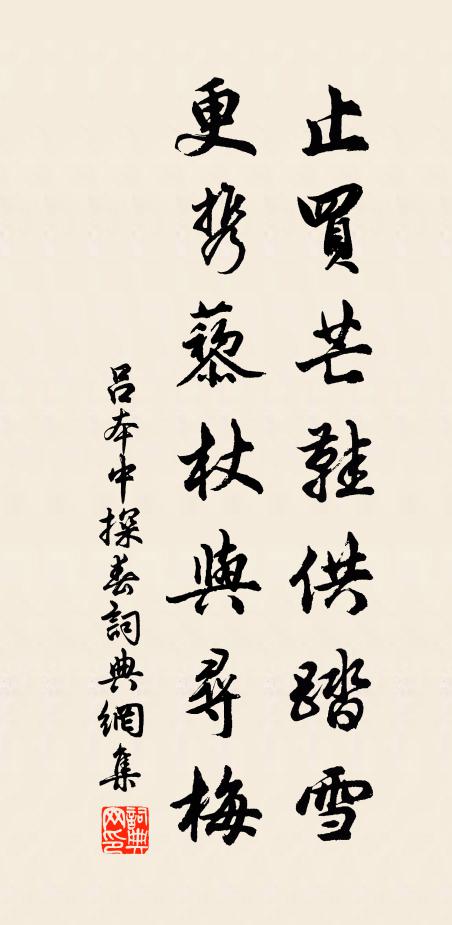 止買芒鞋供踏雪
更携藜杖與尋梅
吕本中探春詞典網集
詞典網印